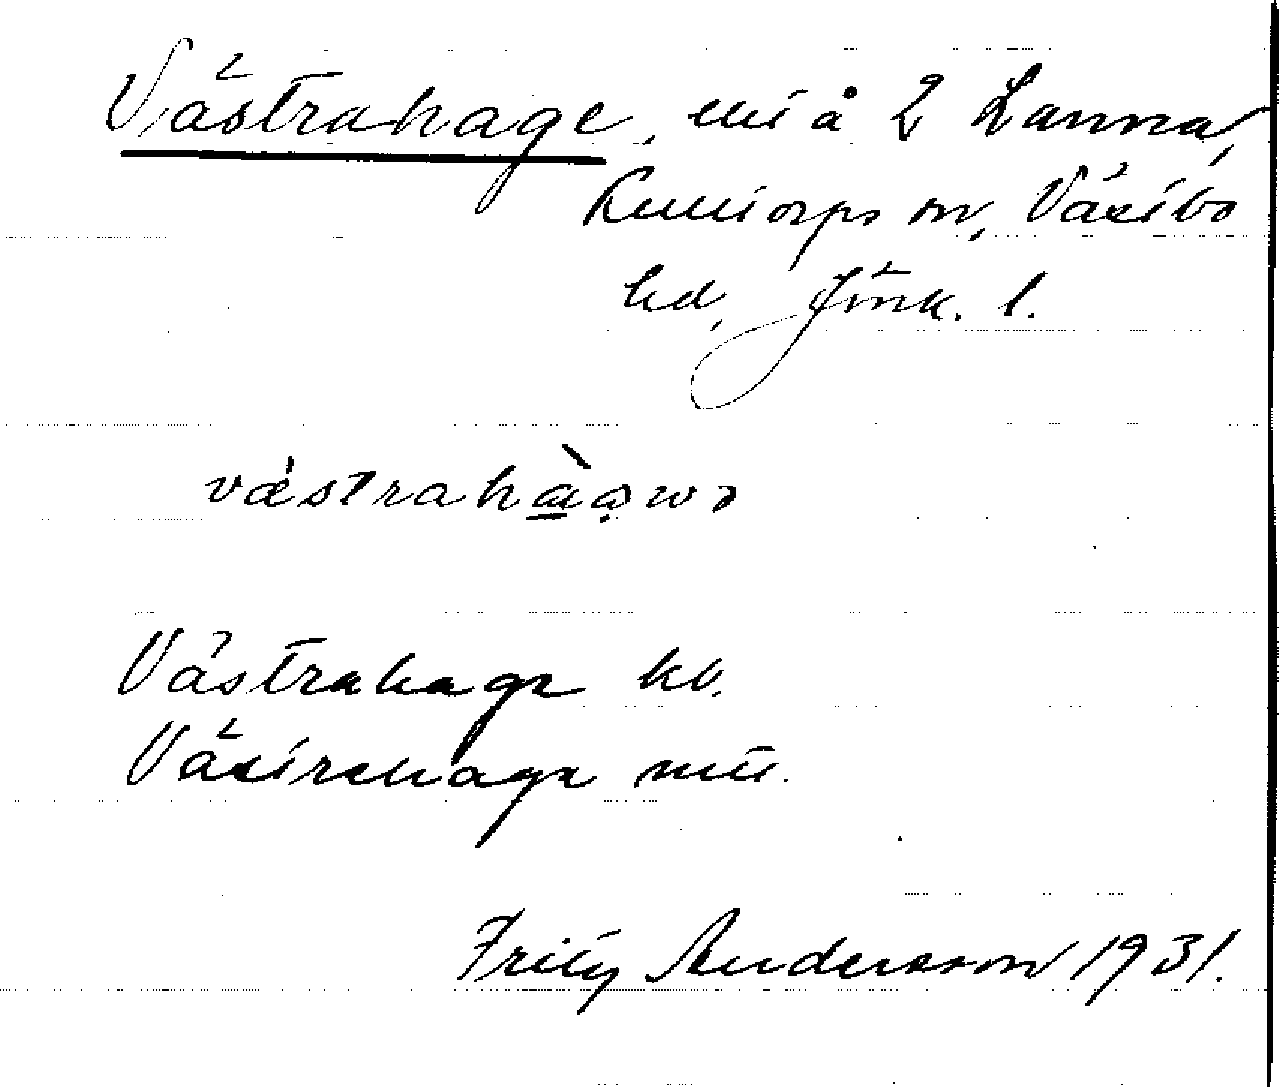 Västrahage, uti å 2 Lanna,
Kulltorps sn, Västbo
hd, Jönk. l.
västrahàawə
Västrahage kb.
Västrahage
Fritz Andersson 1931.